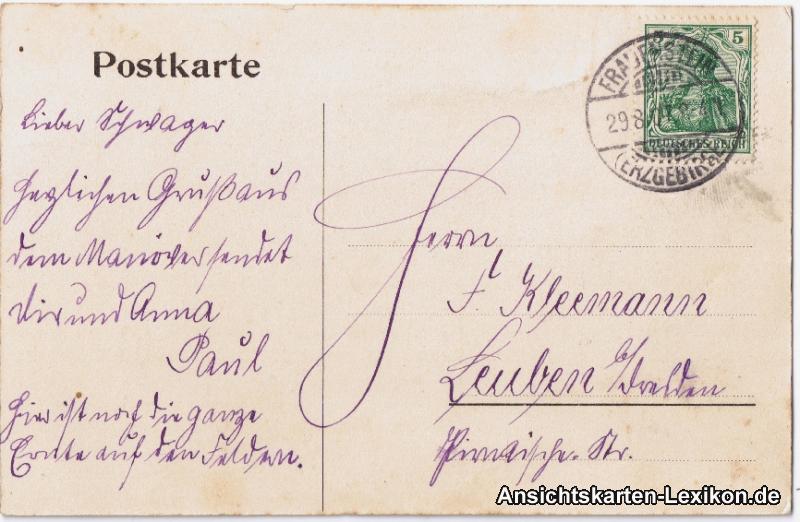 Postkarte
Lieber Schwager
Herzlichen Gruß aus
dem Manöver sendet
Dir und Anna
Paul
Hier ist noch die ganze
Ernte auf den Feldern.
5
DEUTSCHES REICH
FRAUENSTEIN
29.8.
(ERZGEBIRGE)
Herrn
F. Kleemann
Leuben b/Dresden
Pirnaische-Str.
Ansichtskarten-Lexikon.de